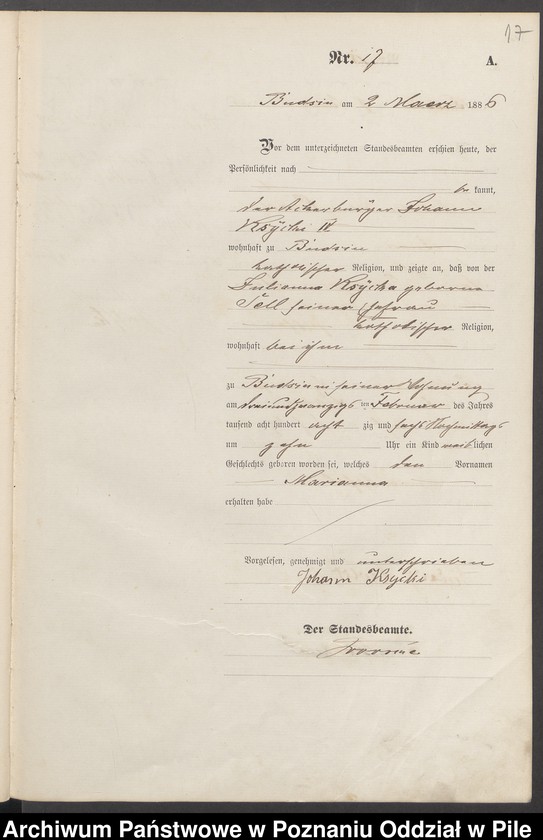 17
Nr. 17
A.
Budsin am 2 Maerz 1886
Vor dem unterzeichneten Standesbeamten erschien heute, der
Persönlichkeit nach
be kannt,
der Ackerbürger Johann
Ksÿcki II
wohnhaft zu Budsin
katholischer Religion, und zeigte an, daß von der
Julianna Ksÿcka geborene
Sell seiner Ehefrau
katholischer Religion,
wohnhaft bei ihm
zu Budsin in seiner Wohnung
am dreiundzwanzigs ten Februar des Jahres
tausend acht hundert acht zig und sechs Nachmittags
um zehn Uhr ein Kind weib lichen
Geschlechts geboren worden sei, welches den Vornamen
Marianna
erhalten habe
Vorgelesen, genehmigt und unterschrieben
Johann Ksycki
Der Standesbeamte.
Archiwum Państwowe w Poznaniu Oddział w Pile